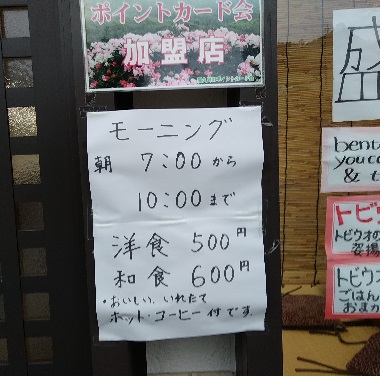 ポイントカード会
加盟店
モーニング
朝 7:00から
10:00まで
洋食 500円
和食 600円
・おいしい、いれたて
ホット・コーヒー付です
盛
bent
you ca
& t
トビウ
トビウオの
姿揚
トビウオ
ごはん
おまか